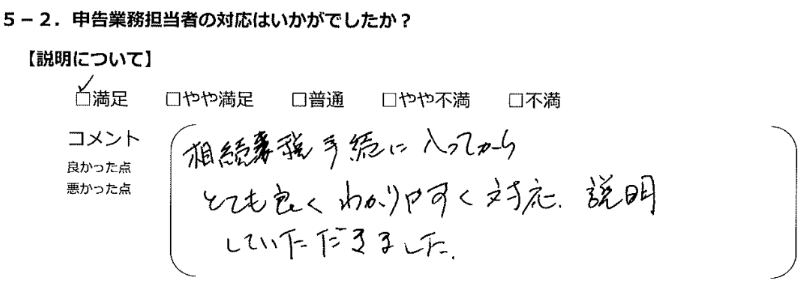 5-2．申告業務担当者の対応はいかがでしたか？
【説明について】
☑満足 □やや満足 □普通 □やや不満 □不満
コメント
良かった点
悪かった点
相続税手続に入ってから
とても良くわかりやすく対応、説明
していただきました。